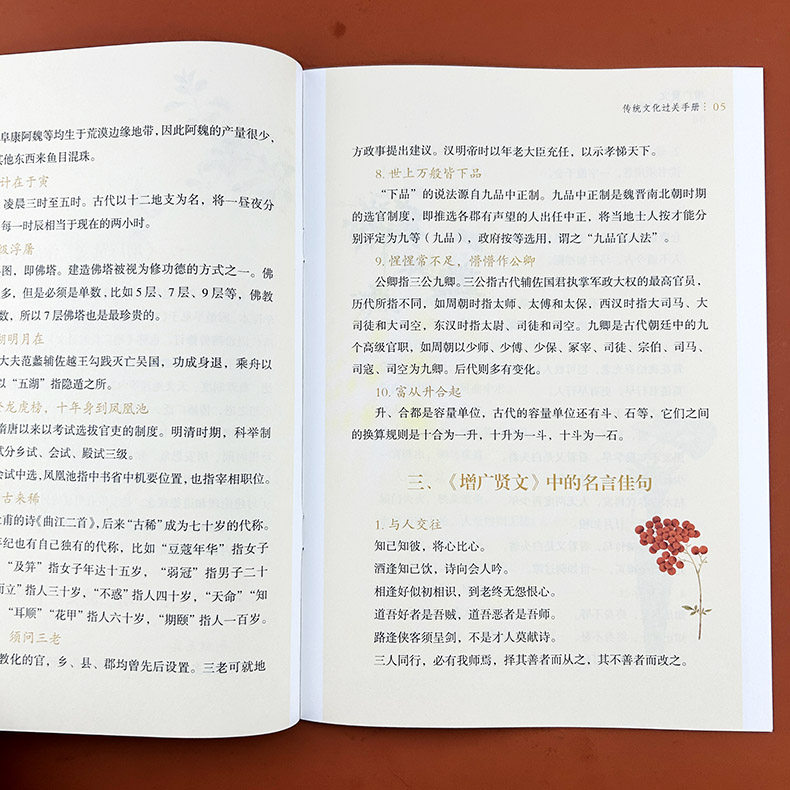 阜康阿魏等均生于荒漠边缘地带，因此阿魏的产量很少，
其他东西来鱼目混珠。
计在于寅
凌晨三时至五时。古代以十二地支为名，将一昼夜分
每一时辰相当于现在的两小时。
级浮屠
图，即佛塔。建造佛塔被视为修功德的方式之一。佛
多，但是必须是单数，比如5层、7层、9层等，佛教
数，所以7层佛塔也是最珍贵的。
湖明月在
大夫范蠡辅佐越王勾践灭亡吴国，功成身退，乘舟以
以“五湖”指隐遁之所。
登龙虎榜，十年身到凤凰池
隋唐以来以考试选拔官吏的制度。明清时期，科举制
试分乡试、会试、殿试三级。
会试中选，凤凰池指中书省中机要位置，也指宰相职位。
古来稀
杜甫的诗《曲江二首》，后来“古稀”成为七十岁的代称。
年纪也有自己独有的代称，比如“豆蔻年华”指女子
“及笄”指女子年达十五岁，“弱冠”指男子二十
而立”指人三十岁，“不惑”指人四十岁，“天命”“知
“耳顺”“花甲”指人六十岁，“期颐”指人一百岁。
须问三老
教化的官，乡、县、郡均曾先后设置。三老可就地
传统文化过关手册 05
方政事提出建议。汉明帝时以年老大臣充任，以示孝悌天下。
8. 世上万般皆下品
“下品”的说法源自九品中正制。九品中正制是魏晋南北朝时期
的选官制度，即推选各郡有声望的人出任中正，将当地士人按才能分
别评定为九等（九品），政府按等选用，谓之“九品官人法”。
9. 惺惺常不足，懵懵作公卿
公卿指三公九卿。三公指古代辅佐国君执掌军政大权的最高官员，
历代所指不同，如周朝时指太师、太傅和太保，西汉时指大司马、大
司徒和大司空，东汉时指太尉、司徒和司空。九卿是古代朝廷中的九
个高级官职，如周朝以少师、少傅、少保、冢宰、司徒、宗伯、司马、
司寇、司空为九卿。后代则多有变化。
10. 富从升合起
升、合都是容量单位，古代的容量单位还有斗、石等，它们之间
的换算规则是十合为一升，十升为一斗，十斗为一石。
三、《增广贤文》中的名言佳句
1. 与人交往
知己知彼，将心比心。
酒逢知己饮，诗向会人吟。
相逢好似初相识，到老终无怨恨心。
道吾好者是吾贼，道吾恶者是吾师。
路逢侠客须呈剑，不是才人莫献诗。
三人同行，必有我师焉，择其善者而从之，其不善者而改之。